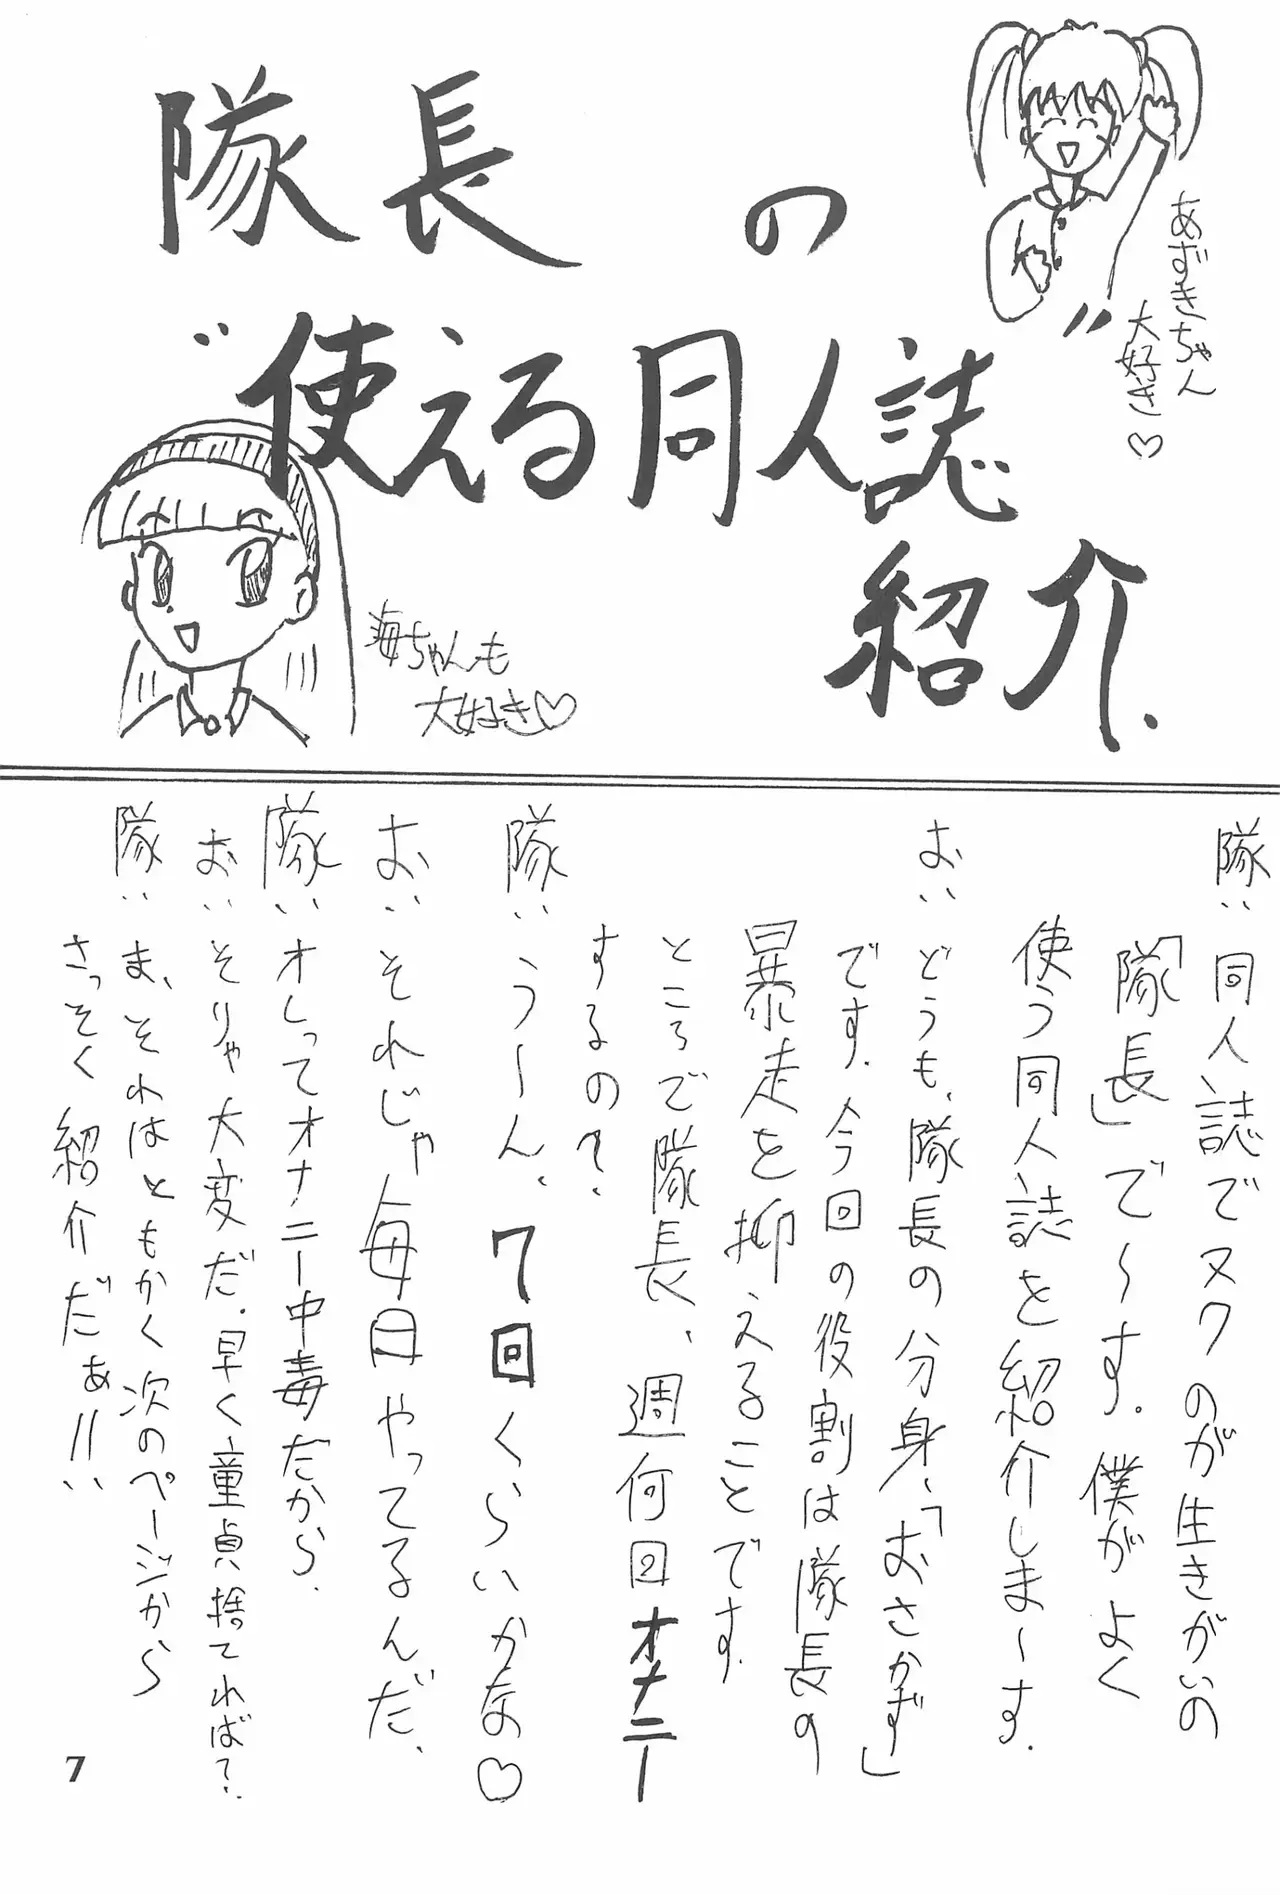 隊長の
"使える同人誌"
紹介.
あずきちゃん
大好き♡
海ちゃんも
大好き♡
隊:同人誌でヌクのが生きがいの
「隊長」で〜す。僕がよく
使う同人誌を紹介しま〜す.
お:どうも、隊長の分身、「おさかず」
です.今回の役割は隊長の
暴走を抑えることです.
ところで隊長、週何回オナニー
するの?
隊:う〜ん、7回くらいかな♡
お:それじゃ毎日やってるんだ、
隊:オレってオナニー中毒だから.
お:そりゃ大変だ.早く童貞捨てれば?.
隊:ま、それはともかく次のページから
さっそく紹介だぁ!!
7